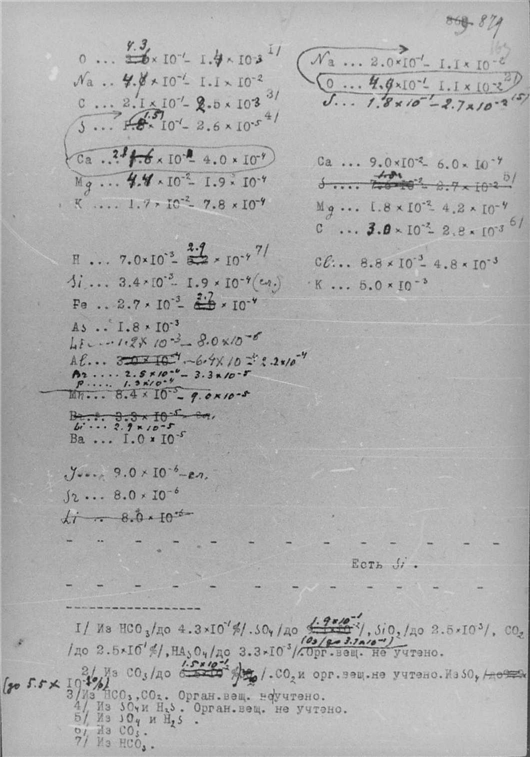 879
O ... 4.3 × 10⁻¹ - 1.4 × 10⁻³ 1/
Na ... 4.8 × 10⁻¹ - 1.1 × 10⁻²
C ... 2.1 × 10⁻¹ - 2.5 × 10⁻³ 3/
S ... 1.5 × 10⁻¹ - 2.6 × 10⁻⁵ 4/
Ca ... - 4.0 × 10⁻⁴
Mg ... 4.4 × 10⁻² - 1.9 × 10⁻⁴
K ... 1.7 × 10⁻² - 7.8 × 10⁻⁴
Na ... 2.0 × 10⁻¹ - 1.1 × 10⁻²
O ... 4.9 × 10⁻¹ - 1.1 × 10⁻² 2/
S ... 1.8 × 10⁻¹ - 2.7 × 10⁻² 5/
Ca ... 9.0 × 10⁻² - 6.0 × 10⁻⁴
S ... - 2.7 × 10⁻² 5/
Mg ... 1.8 × 10⁻² - 4.2 × 10⁻⁴
C ... 3.0 × 10⁻² - 2.8 × 10⁻³ 6/
Cl ... 8.8 × 10⁻³ - 4.8 × 10⁻³
K ... 5.0 × 10⁻³
H ... 7.0 × 10⁻³ - 2.9 × 10⁻⁴ 7/
Si ... 3.4 × 10⁻³ - 1.9 × 10⁻⁴ (сл.)
Fe ... 2.7 × 10⁻³ - 2.7 × 10⁻⁴
As ... 1.8 × 10⁻³
Li ... 1.2 × 10⁻³ - 8.0 × 10⁻⁶
Al ... 3.0 × 10⁻⁴ - 6.4 × 10 2.2 × 10⁻⁴
Br .... 2.5 × 10⁻⁴ - 3.3 × 10⁻⁵
P .... 1.3 × 10⁻⁴
Mn ... 8.4 × 10⁻⁵ - 9.0 × 10⁻⁵
3.3 × 10⁻⁵ - сл.
2.9 × 10⁻⁵
Ba ... 1.0 × 10⁻⁵
J ... 9.0 × 10⁻⁶ - сл.
Sr ... 8.0 × 10⁻⁶
Li ... 8.0 × 10⁻⁶
Есть Si .
1/ Из HCO₃/до 4.3×10⁻¹ %/. SO₄/до 1.9×10⁻¹ /, SiO₂/до 2.5×10⁻³/, CO₂
/до 2.5×10⁻¹ %/, HAsO₄/до 3.3×10⁻³/. Орг.вещ. не учтено.
2/ Из CO₃/до 1.5×10⁻¹ /. CO₂ и орг.вещ.не учтено. Из SO₄
(до 5.5 × 10⁻² %)
3/ Из HCO₃, CO₂. Орган.вещ. не учтено.
4/ Из SO₄ и H₂S . Орган.вещ. не учтено.
5/ Из SO₄ и H₂S .
6/ Из CO₃ .
7/ Из HCO₃ .